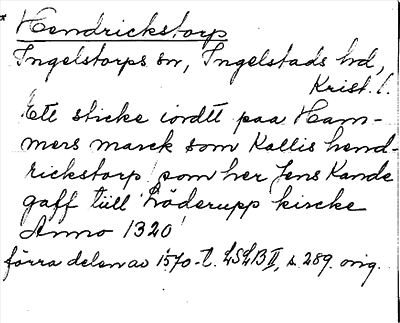 * Hendrickstorp
Ingelstorps sn, Ingelstads hd,
Krist. l.
Ett sticke iordtt paa Ham-
mers marck som Kallis hend-
rickstorp! som her Jens Kande
gaff tiill Löderupp kircke
Anno 1320!
förra delen av 1570-t. LSLB II, s. 289. orig.